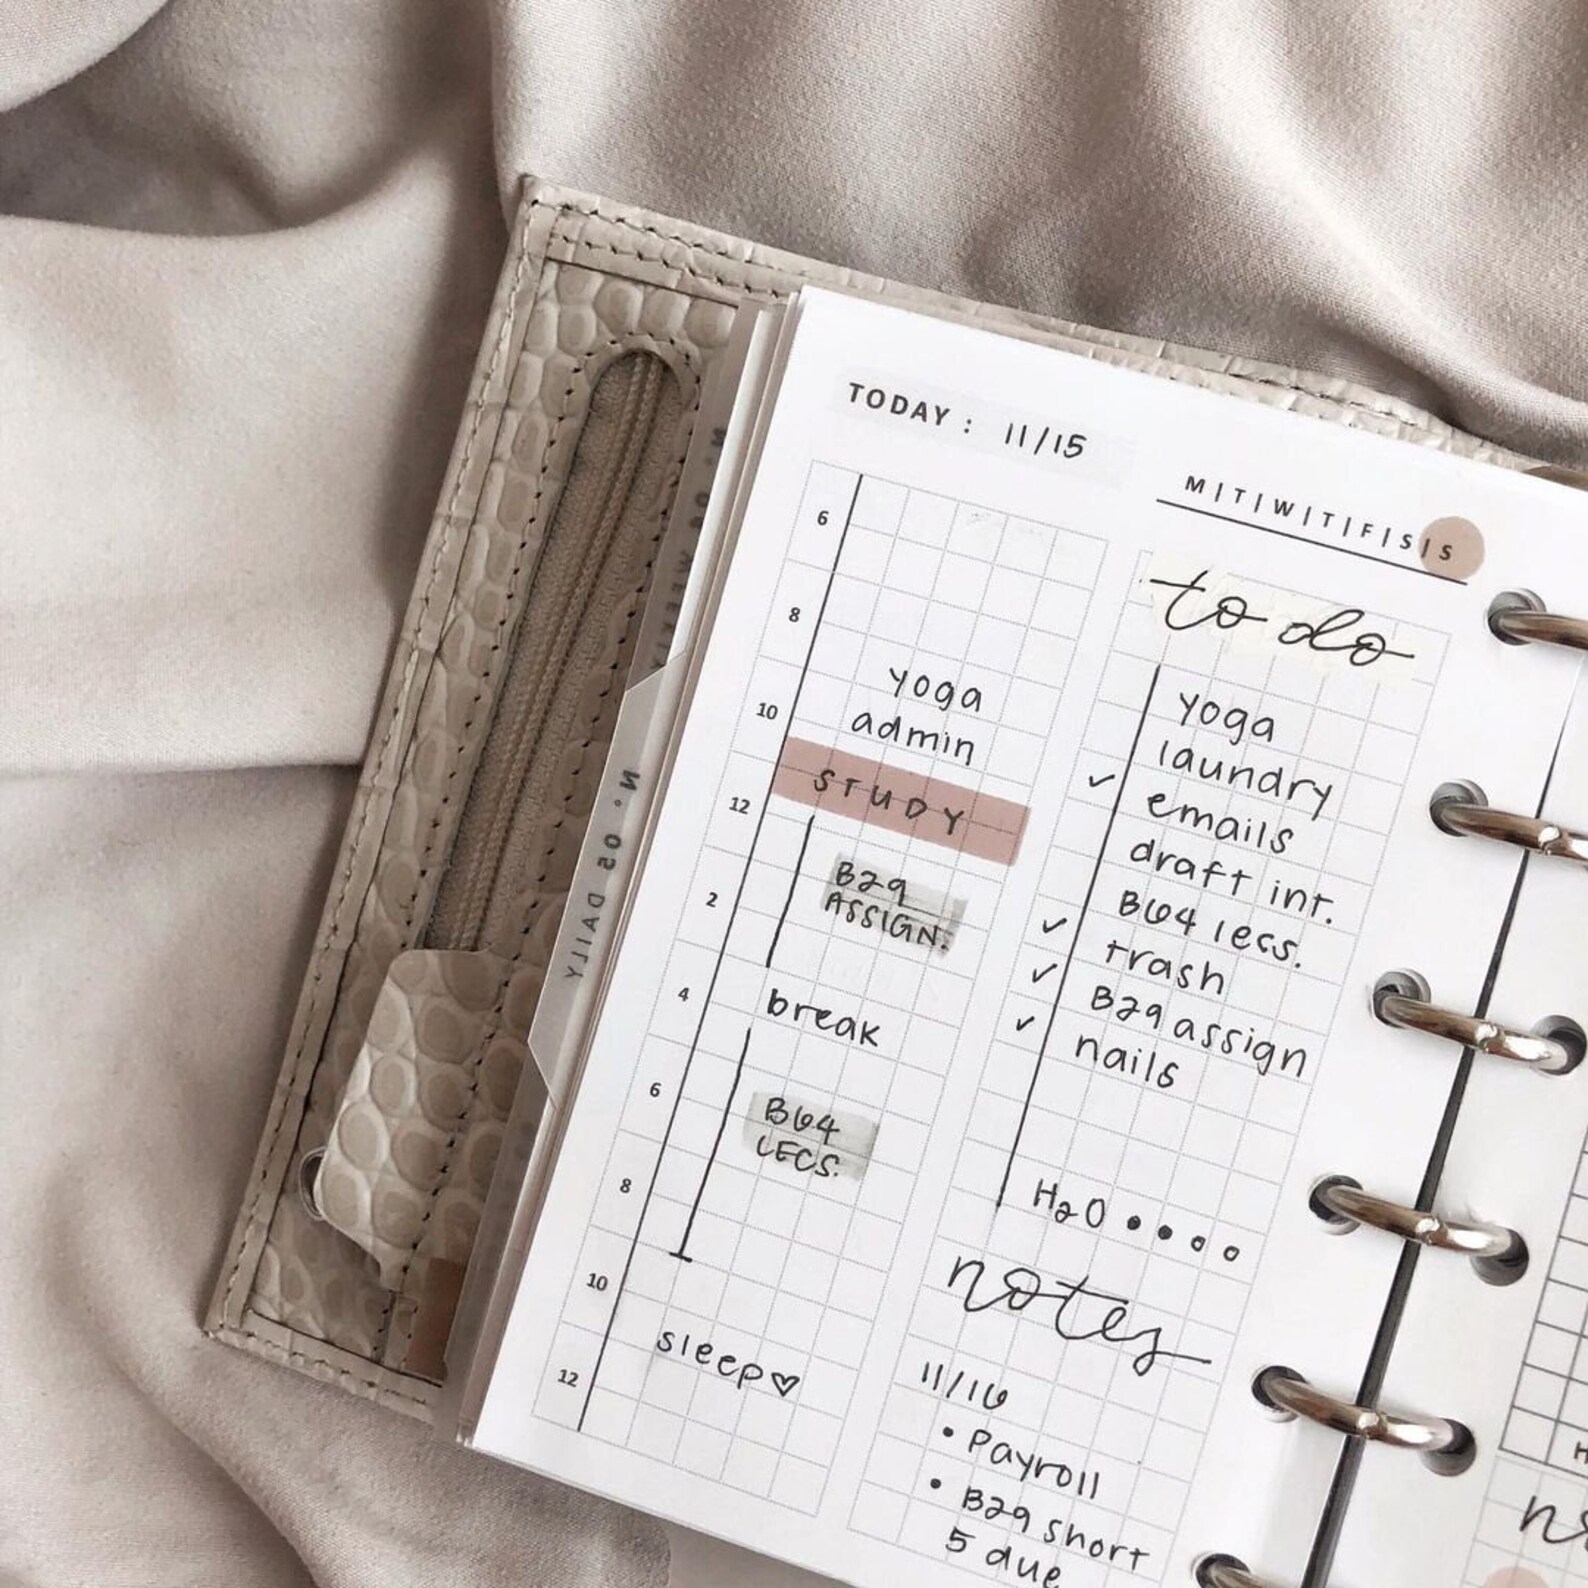 TODAY: 11/15
M|T|W|T|F|S|S
6
8
yoga
10
admin
STUDY
12
B29
2
ASSIGN.
4
break
6
B64
LECS.
8
10
sleep♡
12
to do
yoga
laundry
✓ emails
draft int.
B64 lecs.
✓ trash
✓ B29 assign
✓ nails
H2O • • ∘ ∘
notes
11/16
• Payroll
• B29 short
5 due
N.º 05 DAILY